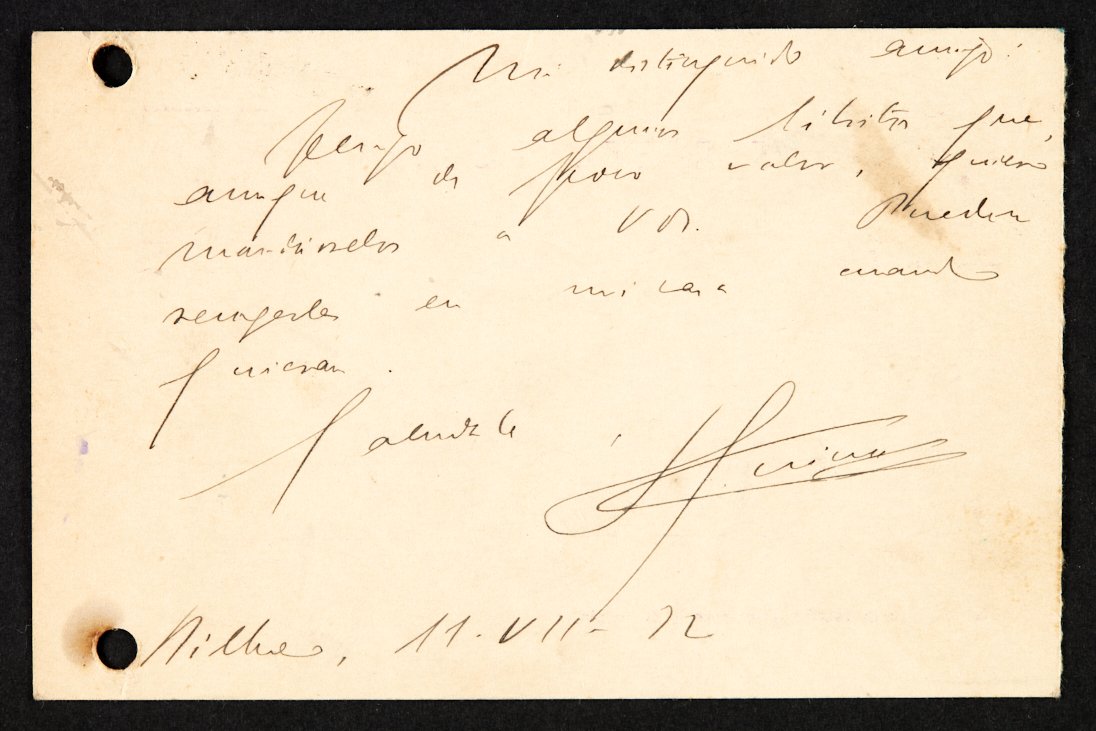 Mi distinguido amigo:
Tengo algunos libritos que,
aunque de poco valor, quiero
mandárselos a VDs. Pueden
recogerles en mi casa cuando
quieran.
Saludale
Bilbao, 11-VII-32